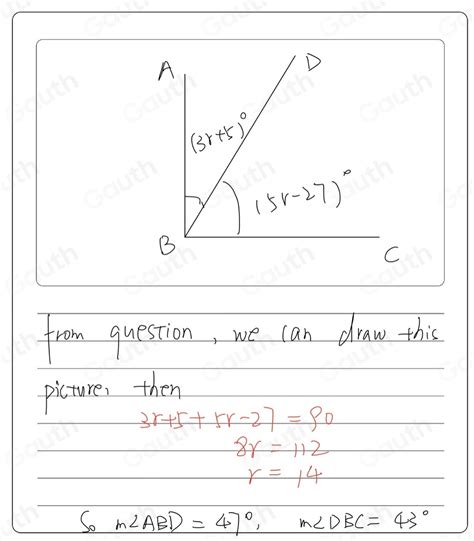 A
D
(3r+5)°
(5r-27)°
B
C
from question, we can draw this
picture, then
3r+5+5r-27=90
8r=112
r=14
So m∠ABD=47°, m∠DBC=43°
Gauth